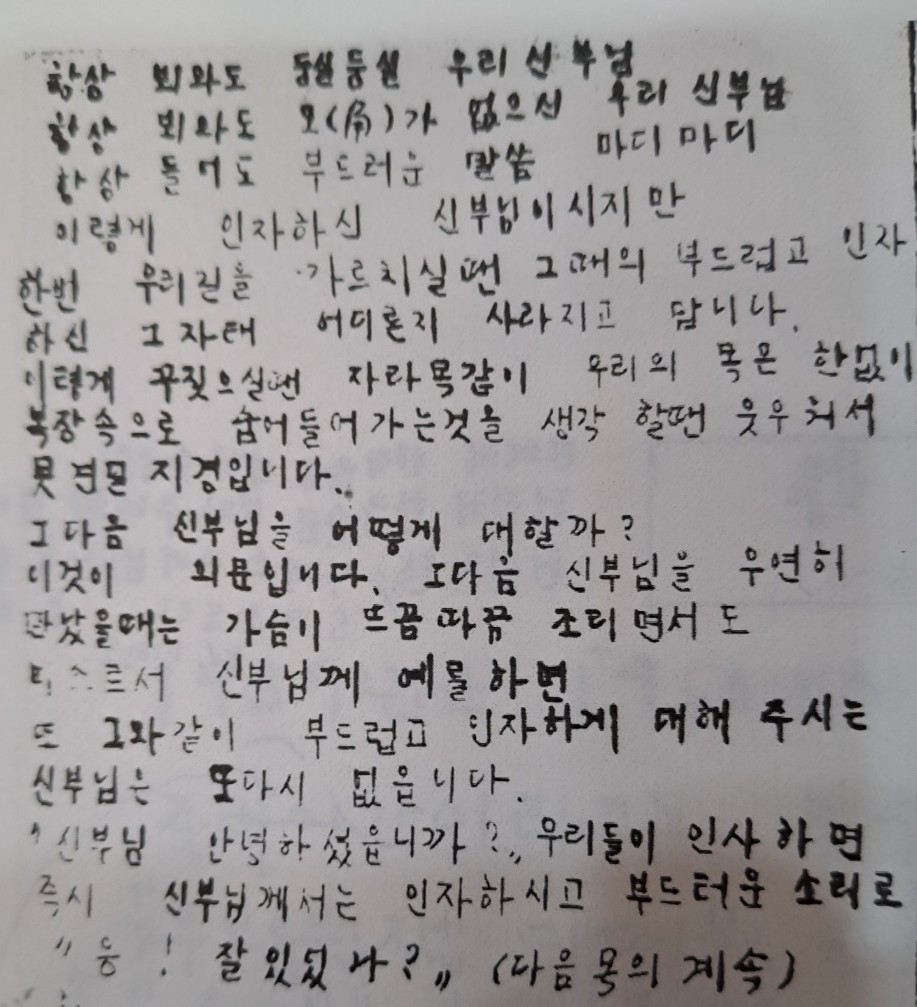 항상 뵈와도 둥실둥실 우리 신부님
항상 뵈와도 모(角)가 없으신 우리 신부님
항상 들어도 부드러운 말씀 마디마디
이렇게 인자하신 신부님이시지만
한번 우리들을 가르치실땐 그때의 부드럽고 인자
하신 그자태 어디론지 사라지고 맙니다.
이렇게 꾸짖으실땐 자라목같이 우리의 목은 한없이
복장속으로 숨어들어가는것을 생각 할땐 웃우워서
못견딜 지경입니다.
그다음 신부님을 어떻게 대할까?
이것이 의문입니다. 그다음 신부님을 우연히
만났을때는 가슴이 뜨끔따끔 조리면서도
신부님께 예를하면
또 그와같이 부드럽고 인자하게 대해 주시는
신부님은 또다시 없읍니다.
"신부님 안녕하셨읍니까?" 우리들이 인사하면
즉시 신부님께서는 인자하시고 부드러운 소리로
"응! 잘있었나?" (다음 목의 계속)